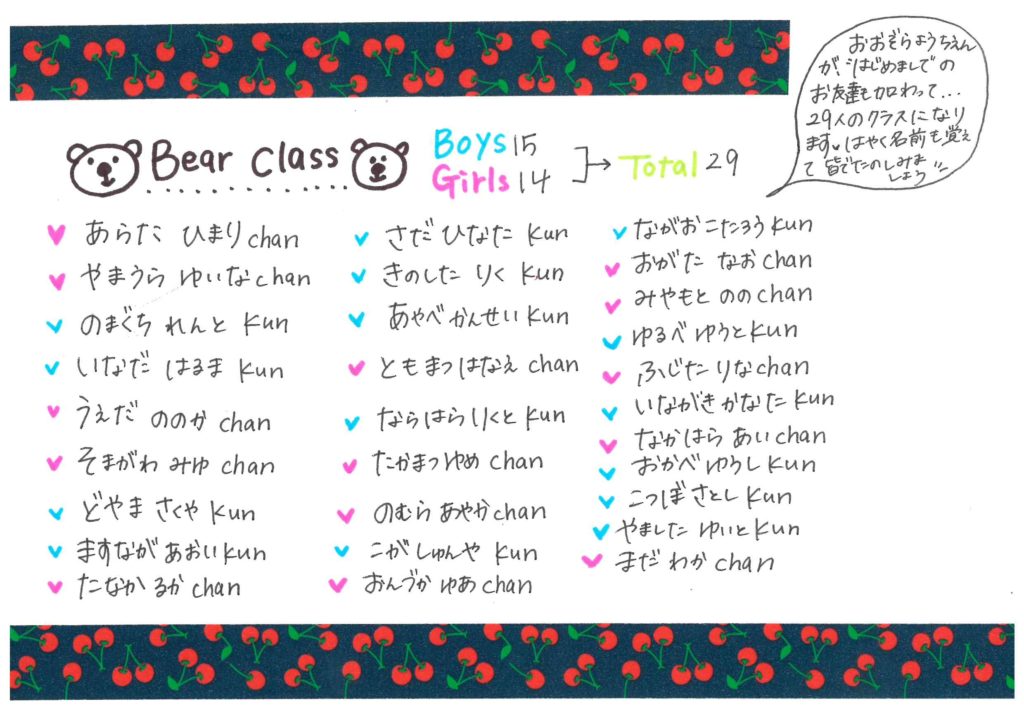 Bear Class
Boys 15
Girls 14
Total 29
おおぞらようちえん
が"はじめまして"の
お友達も加わって...
29人のクラスになり
ます♥はやく名前も覚え
て皆でたのしみま
しょう
あらた ひまり chan
やまうら ゆいな chan
のまぐち れんと kun
いなだ はるま kun
うえだ ののか chan
そまがわ みゆ chan
どやま さくや kun
ますなが あおい kun
たなか るか chan
さだ ひなた kun
きのした りく kun
あやべ かんせい kun
ともまつ はなえ chan
ならはら りくと kun
たかまつ ゆめ chan
のむら あやか chan
こが しゅんや kun
おんづか ゆあ chan
ながお こたろう kun
おがた なお chan
みやもと のの chan
ゆるべ ゆうと kun
ふじた りな chan
いながき かなた kun
なかはら あい chan
おかべ ゆうし kun
こつぼ さとし kun
やました ゆいと kun
まだ わか chan